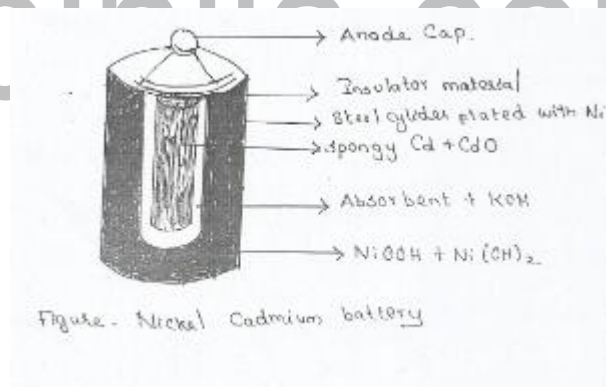 Anode Cap.
Insulator material
Steel cylider plated with Ni
spongy Cd + CdO
Absorbent + KOH
NiOOH + Ni(OH)2
Figure - Nickel Cadmium battery